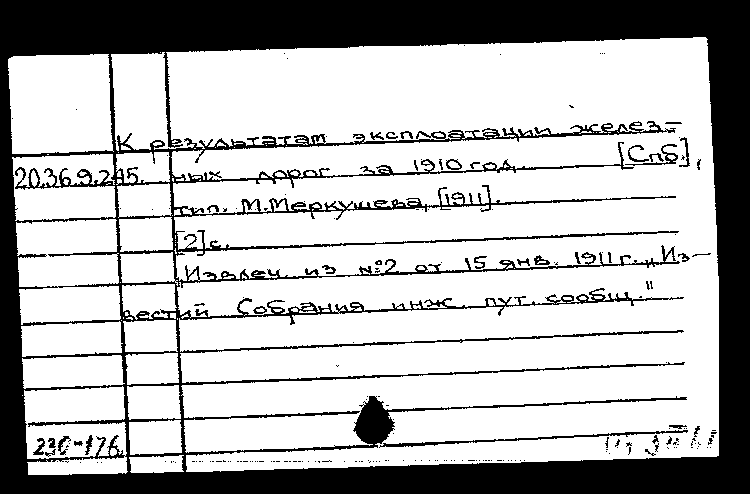 К результатам эксплоатации желез-
20.36.9.245. ных дорог за 1910 год. [Спб],
тип. М.Меркушева, [1911].
[2] с.
„Извлеч. из №2 от 15 янв. 1911 г. „Из-
вестий Собрания инж. пут. сообщ."
230-176